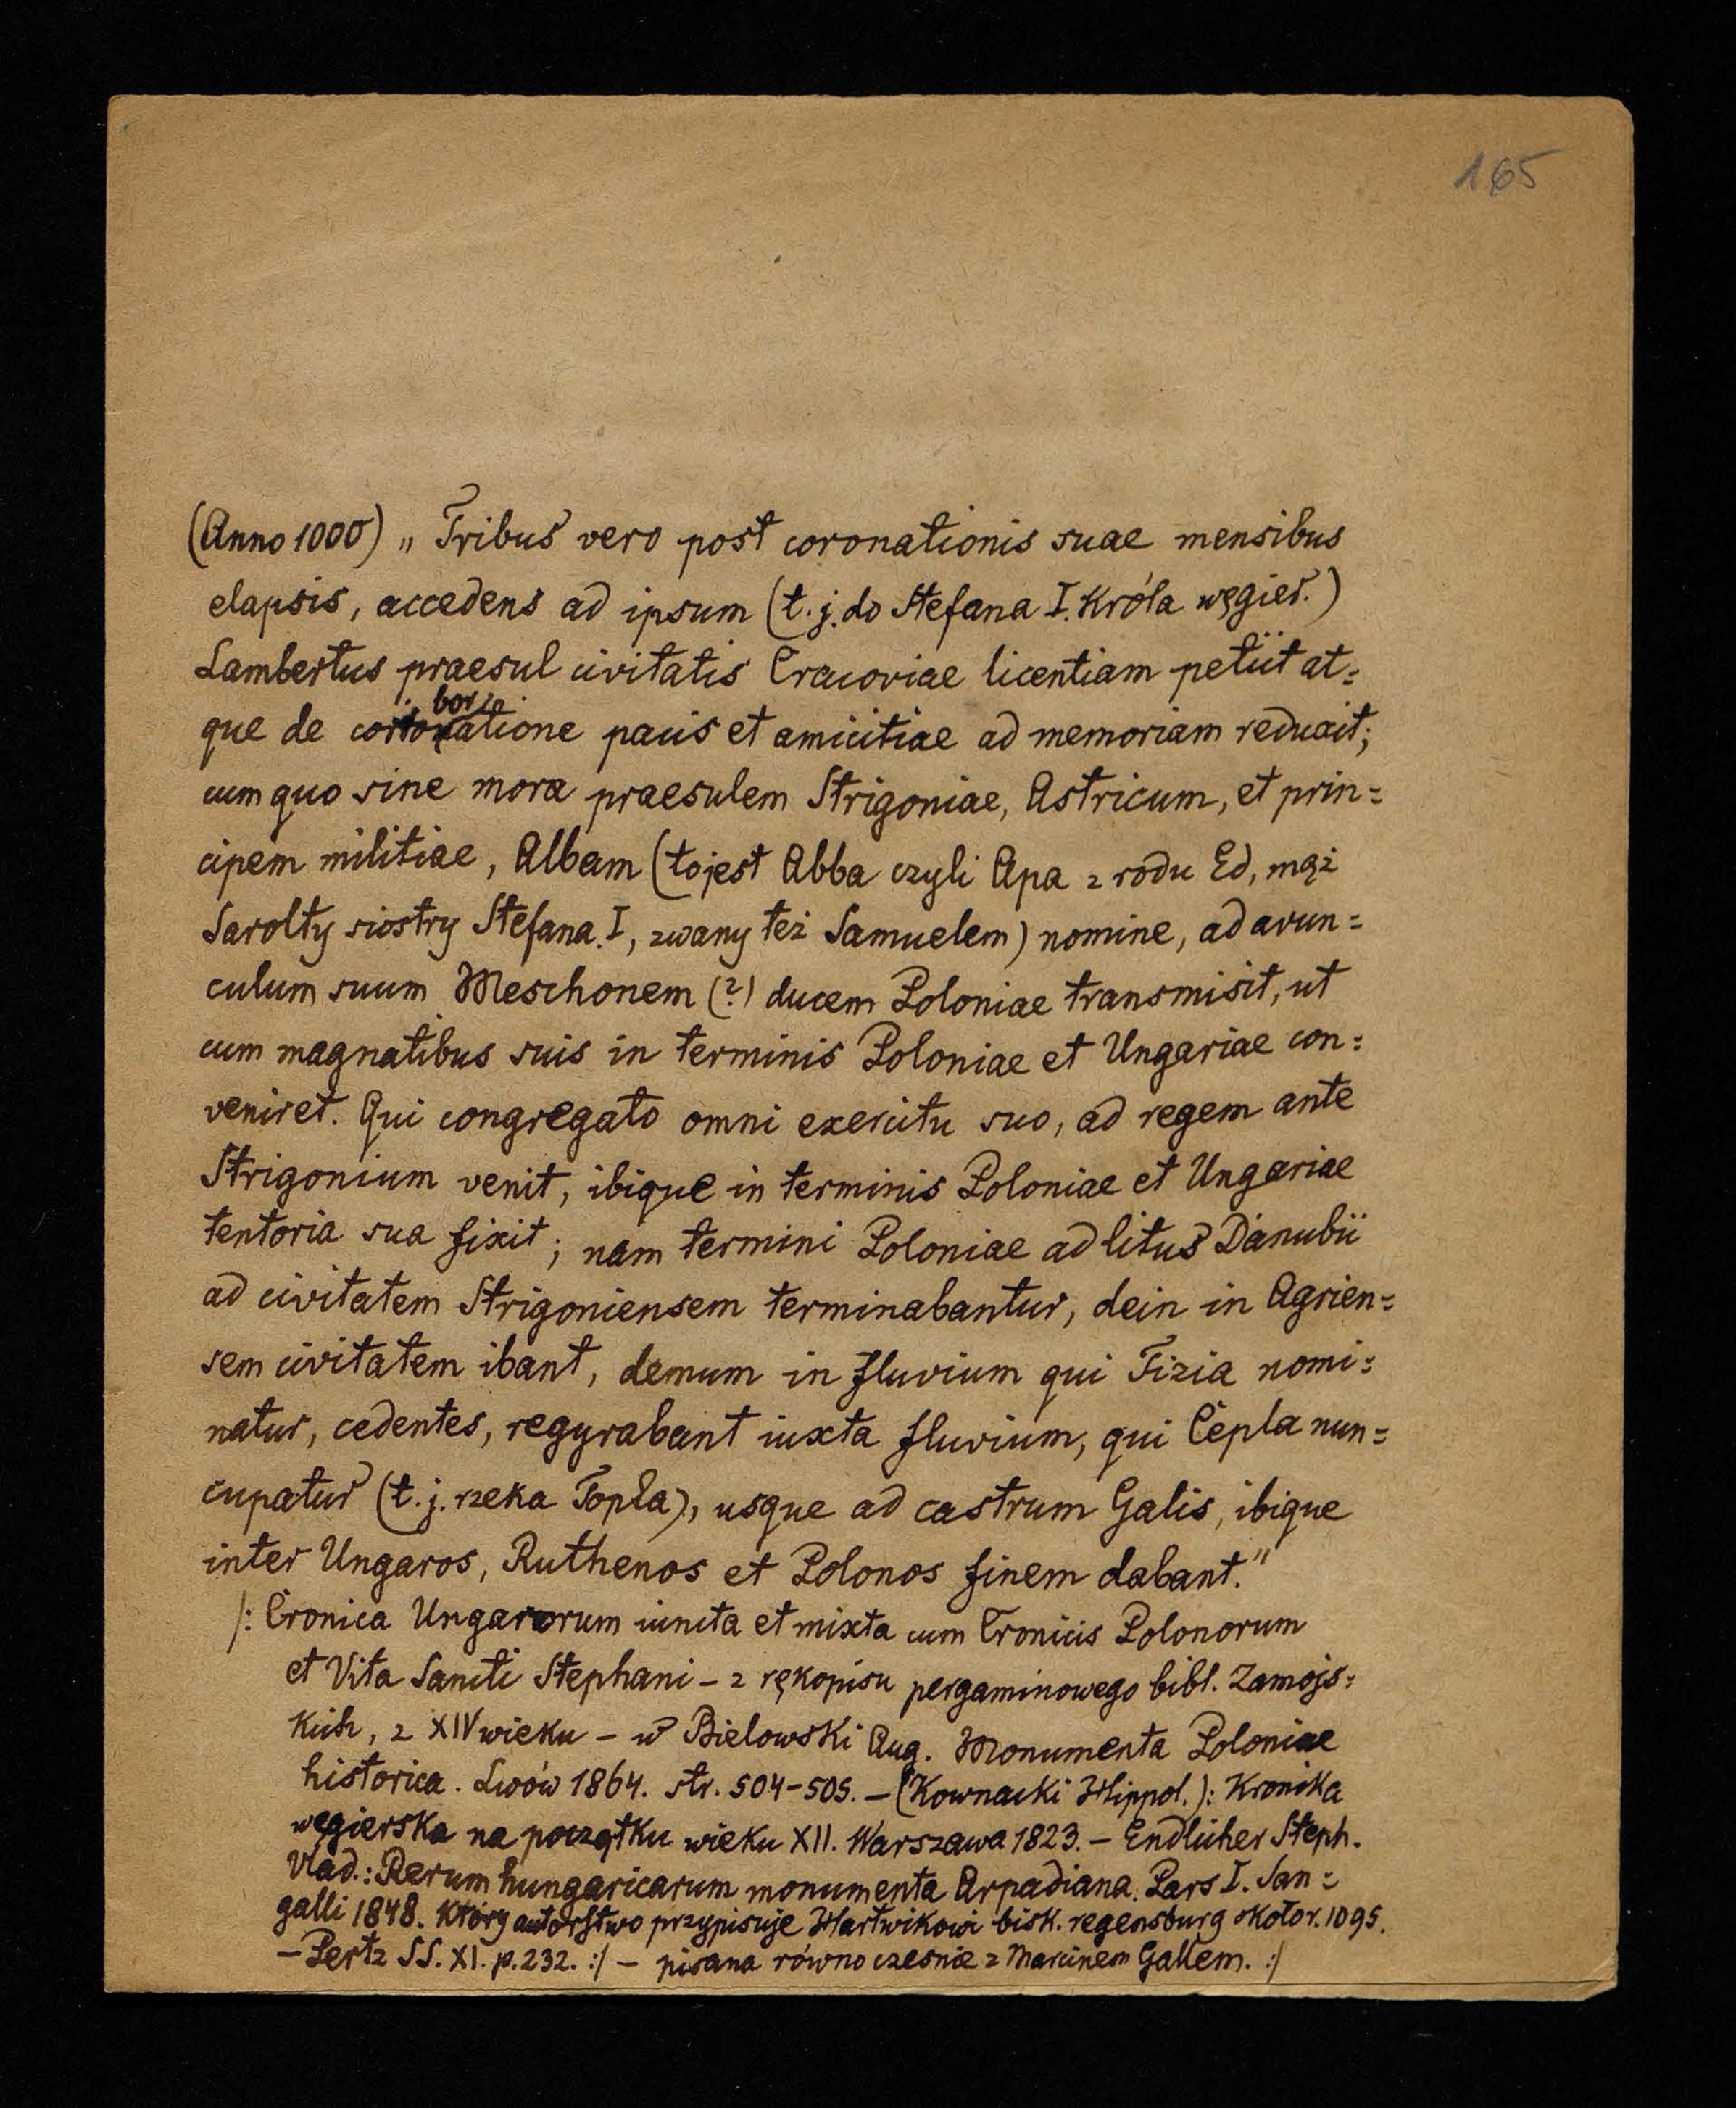 165
(Anno 1000) „Tribus vero post coronationis suae mensibus
elapsis, accedens ad ipsum (t. j. do Stefana I. Króla węgier.)
Lambertus praesul civitatis Cracoviae licentiam petiit at=
que de corroboratione pacis et amicitiae ad memoriam reduxit;
cum quo sine mora praesulem Strigoniae, Astricum, et prin=
cipem militiae, Albam (to jest Abba czyli Apa z rodu Ed, mąż
Sarolty siostry Stefana I, zwany też Samuelem) nomine, ad avun=
culum suum Meschonem (?) ducem Poloniae transmisit, ut
cum magnatibus suis in terminis Poloniae et Ungariae con=
veniret. Qui congregato omni exercitu suo, ad regem ante
Strigonium venit, ibique in terminis Poloniae et Ungariae
tentoria sua fixit; nam termini Poloniae ad litus Danubii
ad civitatem Strigoniensem terminabantur, dein in Agrien=
sem civitatem ibant, demum in fluvium qui Tizia nomi=
natur, cedentes, regyrabant iuxta fluvium, qui Cepla nun=
cupatur (t. j. rzeka Topla), usque ad castrum Galis, ibique
inter Ungaros, Ruthenos et Polonos finem dabant."
/: Cronica Ungarorum iuncta et mixta cum Cronicis Polonorum
et Vita Sancti Stephani – z rękopisu pergaminowego bibl. Zamojs=
kich, z XIV wieku – w Bielowski Aug. Monumenta Poloniae
historica. Lwów 1864. str. 504-505. – (Kownacki Hippol.): Kronika
węgierska na początku wieku XII. Warszawa 1823. – Endlicher Steph.
Vlad.: Rerum hungaricarum monumenta Arpadiana. Pars I. San=
galli 1848. Który autorstwo przypisuje Hartwikowi bisk. regensburg około r. 1095.
– Pertz SS. XI. p. 232. :/ – pisana równo czesnie z Marcinem Gallem. :/